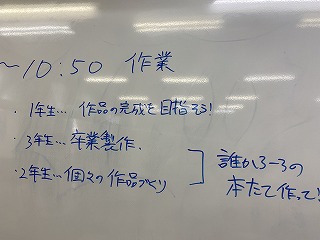 ～10:50 作業
・1年生… 作品の完成を目指そう!
・3年生… 卒業製作、
・2年生… 個々の作品づくり
誰か3-3の
本たて作って!